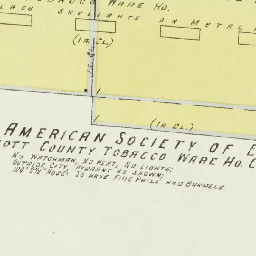 WARE HO.
SKYLIGHTS OR METAL
(IR. CL.)
(IR. CL.)
AMERICAN SOCIETY OF E
OTT COUNTY TOBACCO WARE HO. C
NO WATCHMAN, NO HEAT, NO LIGHTS;
OUTSIDE CITY HYDRANT AS SHOWN;
100' 2½" HOSE: TO HAVE FIRE PAILS AND BARRELS.